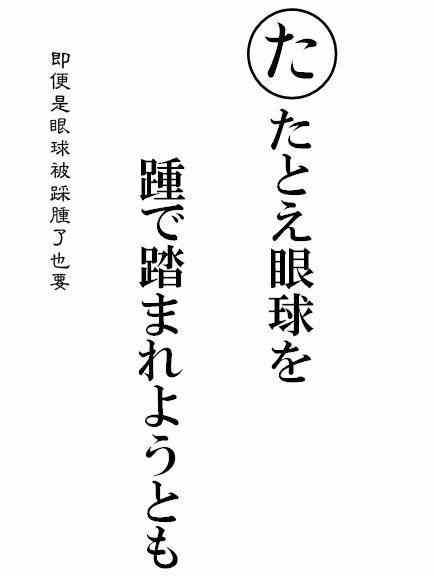 た
たとえ眼球を
踵で踏まれようとも
即便是眼球被踩腫了也要